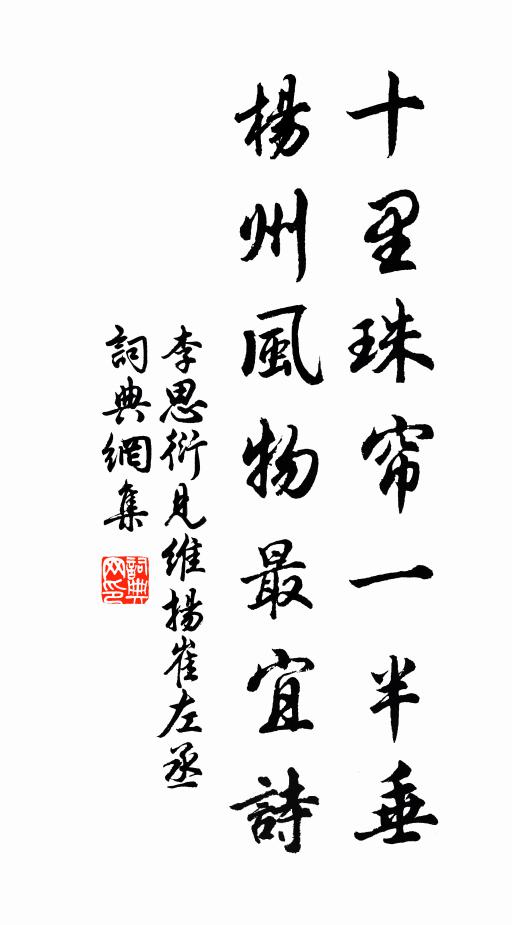 十里珠帘一半垂
楊州風物最宜詩
李思衍見維揚崔左丞
詞典網集
詞典
网印